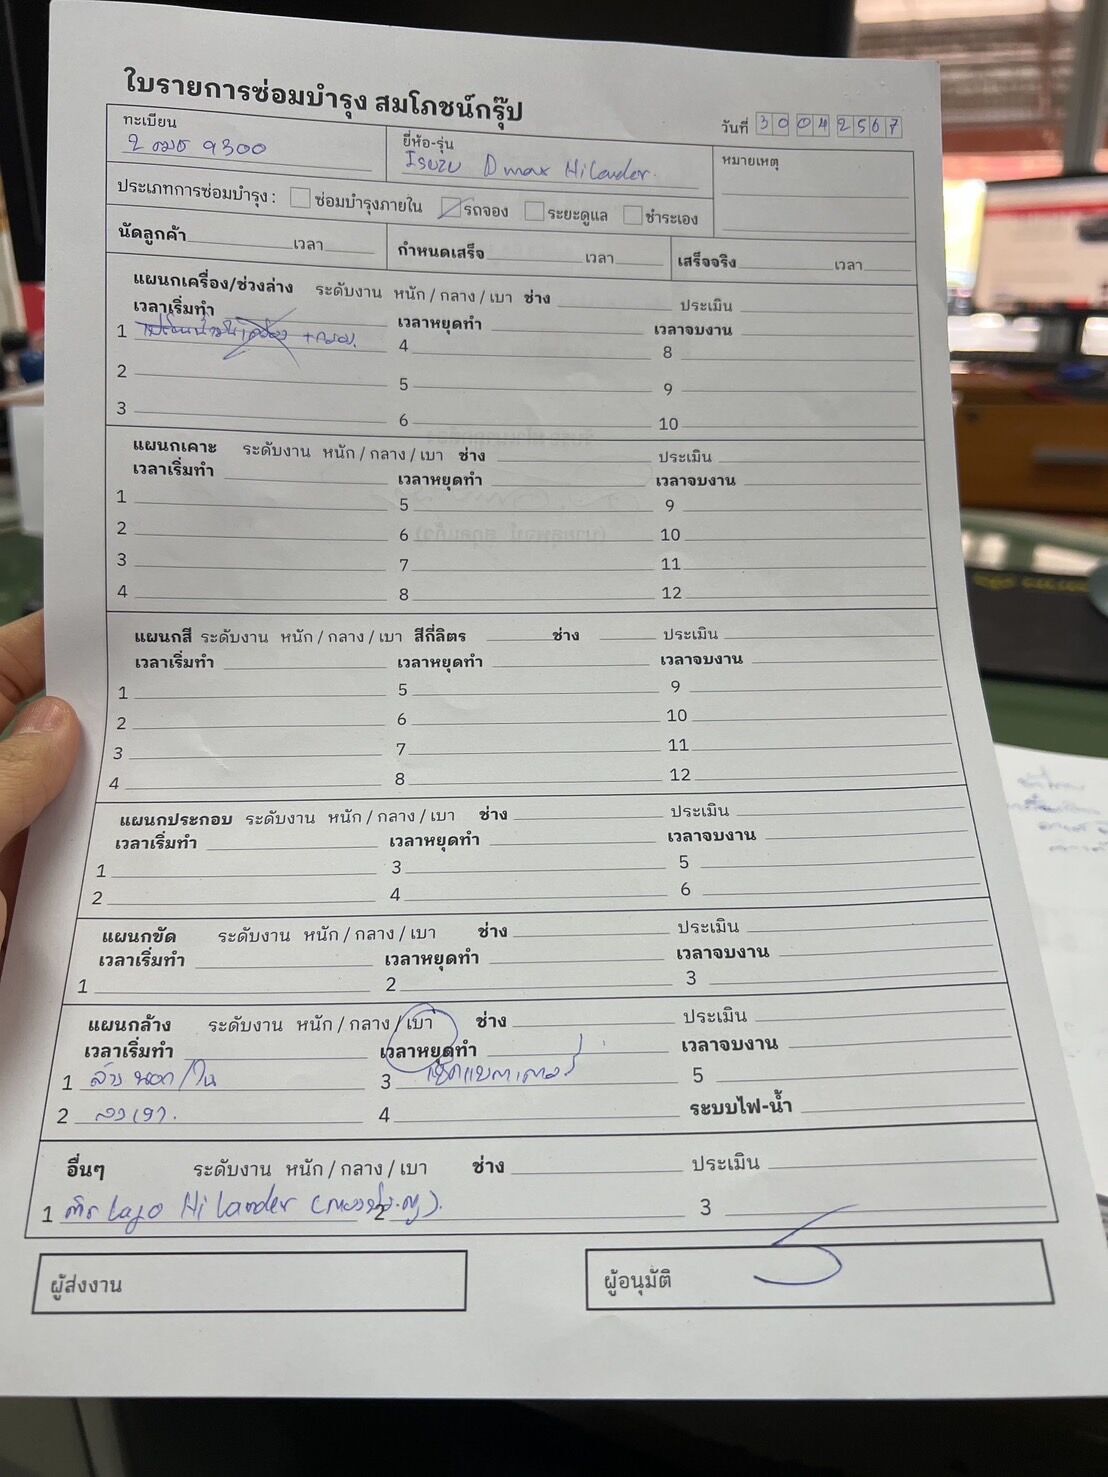 ใบรายการซ่อมบำรุง สมโภชน์กรุ๊ป
วันที่ 30 04 2567
ทะเบียน
2 ฒธ 9300
ยี่ห้อ-รุ่น
ISUZU Dmax Hilander.
หมายเหตุ
ประเภทการซ่อมบำรุง : ซ่อมบำรุงภายใน รถจอง ระยะดูแล ชำระเอง
นัดลูกค้า เวลา กำหนดเสร็จ เวลา เสร็จจริง เวลา
แผนกเครื่อง/ช่วงล่าง ระดับงาน หนัก / กลาง / เบา ช่าง ประเมิน
เวลาเริ่มทำ เวลาหยุดทำ เวลาจบงาน
1 เปลี่ยนน้ำมันเครื่อง + กรอง. 4 8
2 5 9
3 6 10
แผนกเคาะ ระดับงาน หนัก / กลาง / เบา ช่าง ประเมิน
เวลาเริ่มทำ เวลาหยุดทำ เวลาจบงาน
1 5 9
2 6 10
3 7 11
4 8 12
แผนกสี ระดับงาน หนัก / กลาง / เบา สีกี่ลิตร ช่าง ประเมิน
เวลาเริ่มทำ เวลาหยุดทำ เวลาจบงาน
1 5 9
2 6 10
3 7 11
4 8 12
แผนกประกอบ ระดับงาน หนัก / กลาง / เบา ช่าง ประเมิน
เวลาเริ่มทำ เวลาหยุดทำ เวลาจบงาน
1 3 5
2 4 6
แผนกขัด ระดับงาน หนัก / กลาง / เบา ช่าง ประเมิน
เวลาเริ่มทำ เวลาหยุดทำ เวลาจบงาน
1 2 3
แผนกล้าง ระดับงาน หนัก / กลาง / เบา ช่าง ประเมิน
เวลาเริ่มทำ เวลาหยุดทำ เวลาจบงาน
1 ล้าง นอก/ใน 3 เช็คแบตเตอรี่ 5
2 ลงเงา. 4 ระบบไฟ-น้ำ
อื่นๆ ระดับงาน หนัก / กลาง / เบา ช่าง ประเมิน
1 ติด Logo Hi Lander 2 3
ผู้ส่งงาน ผู้อนุมัติ